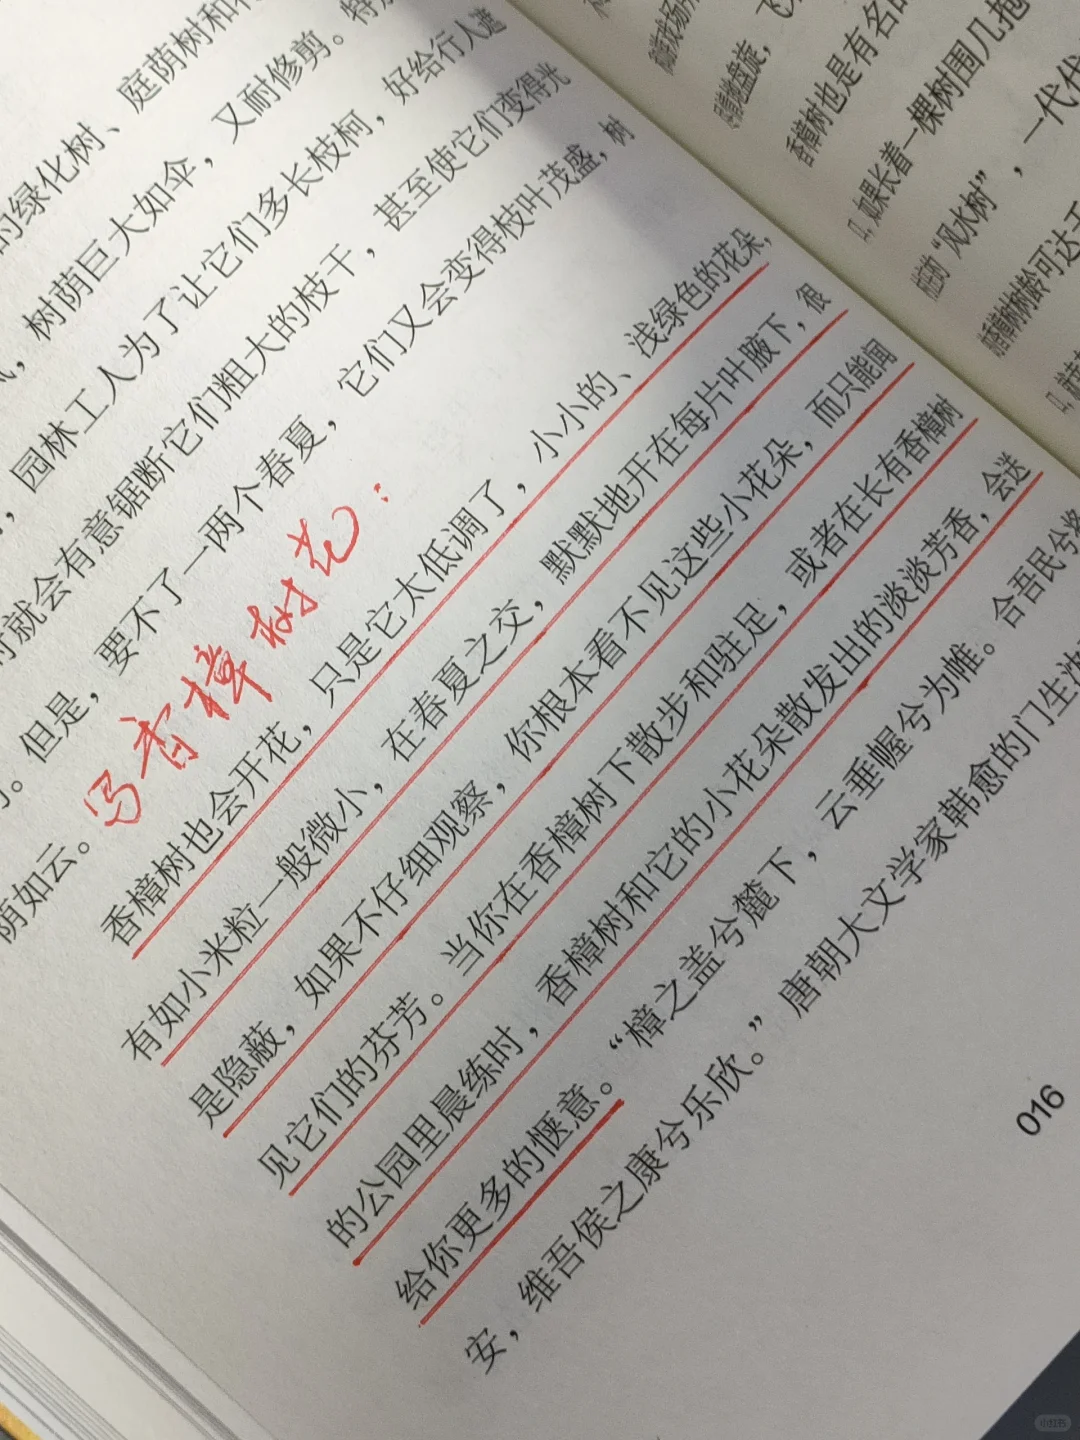 的绿化树、庭荫树和
，树荫巨大如伞，又耐修剪。特
，园林工人为了让它们多长枝柯，好给行人遮
时就会有意锯断它们粗大的枝干，甚至使它们变得光
。但是，要不了一两个春夏，它们又会变得枝叶茂盛，树
荫如云。
写香樟树花：
香樟树也会开花，只是它太低调了，小小的、浅绿色的花朵，
有如小米粒一般微小，在春夏之交，默默地开在每片叶腋下，很
是隐蔽，如果不仔细观察，你根本看不见这些小花朵，而只能闻
见它们的芬芳。当你在香樟树下散步和驻足，或者在长有香樟树
的公园里晨练时，香樟树和它的小花朵散发出的淡淡芳香，会送
给你更多的惬意。“樟之盖兮麓下，云垂幄兮为帷。合吾民兮
安，维吾侯之康兮乐欣。”唐朝大文学家韩愈的门生沈
016
盘旋，飞
香樟树也是有名的
口，如果长着一棵树围几抱
“风水树”，一代代
香樟树树龄可达千